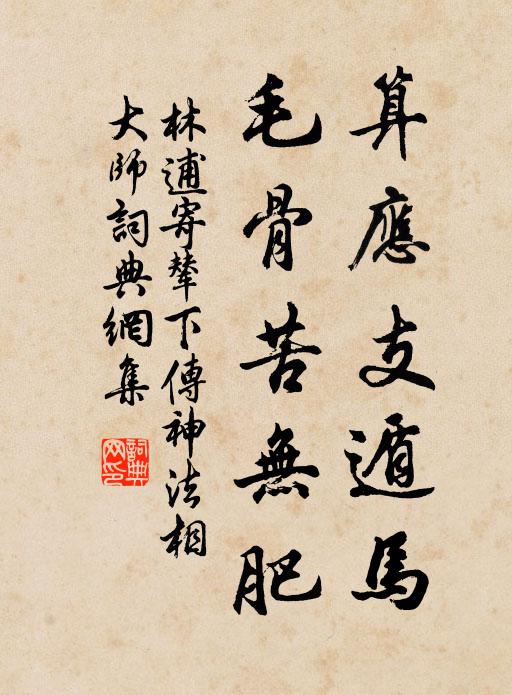 算應支遁馬
毛骨苦無肥
林逋寄輦下傳神法相
大師詞典網集
詞典
網印